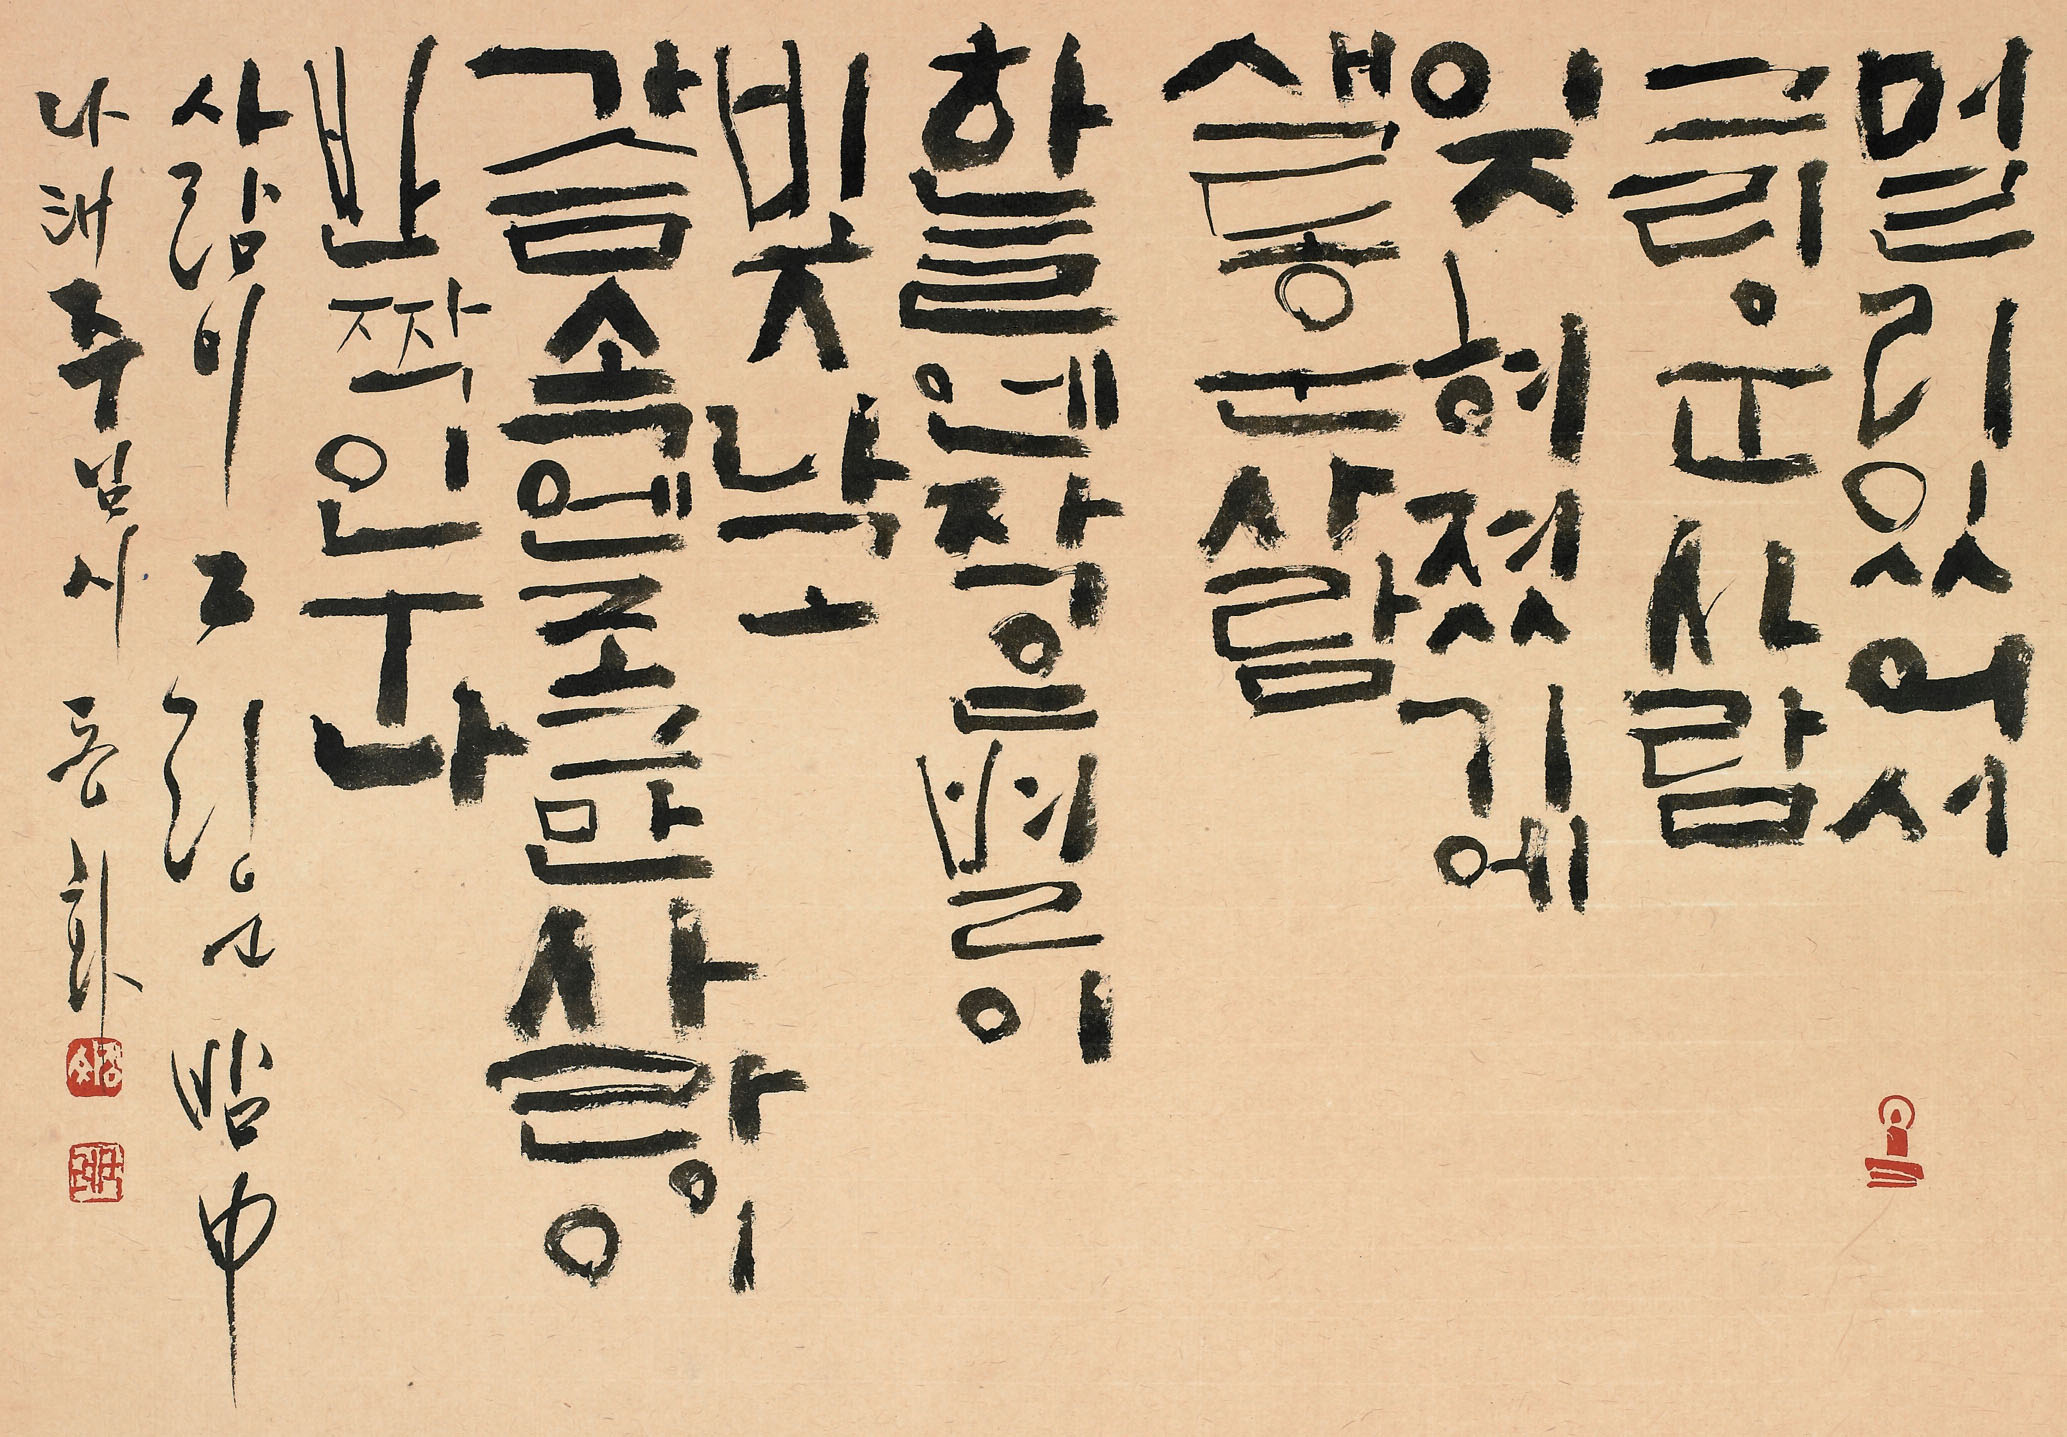 멀리있어서
그리운사람
잊혀졌기에
새로운사람
하늘엔작은별이
빛나고
가슴속엔조그만사랑이
반짝이누나
사람이 그리운 밤 中
나태주님 시